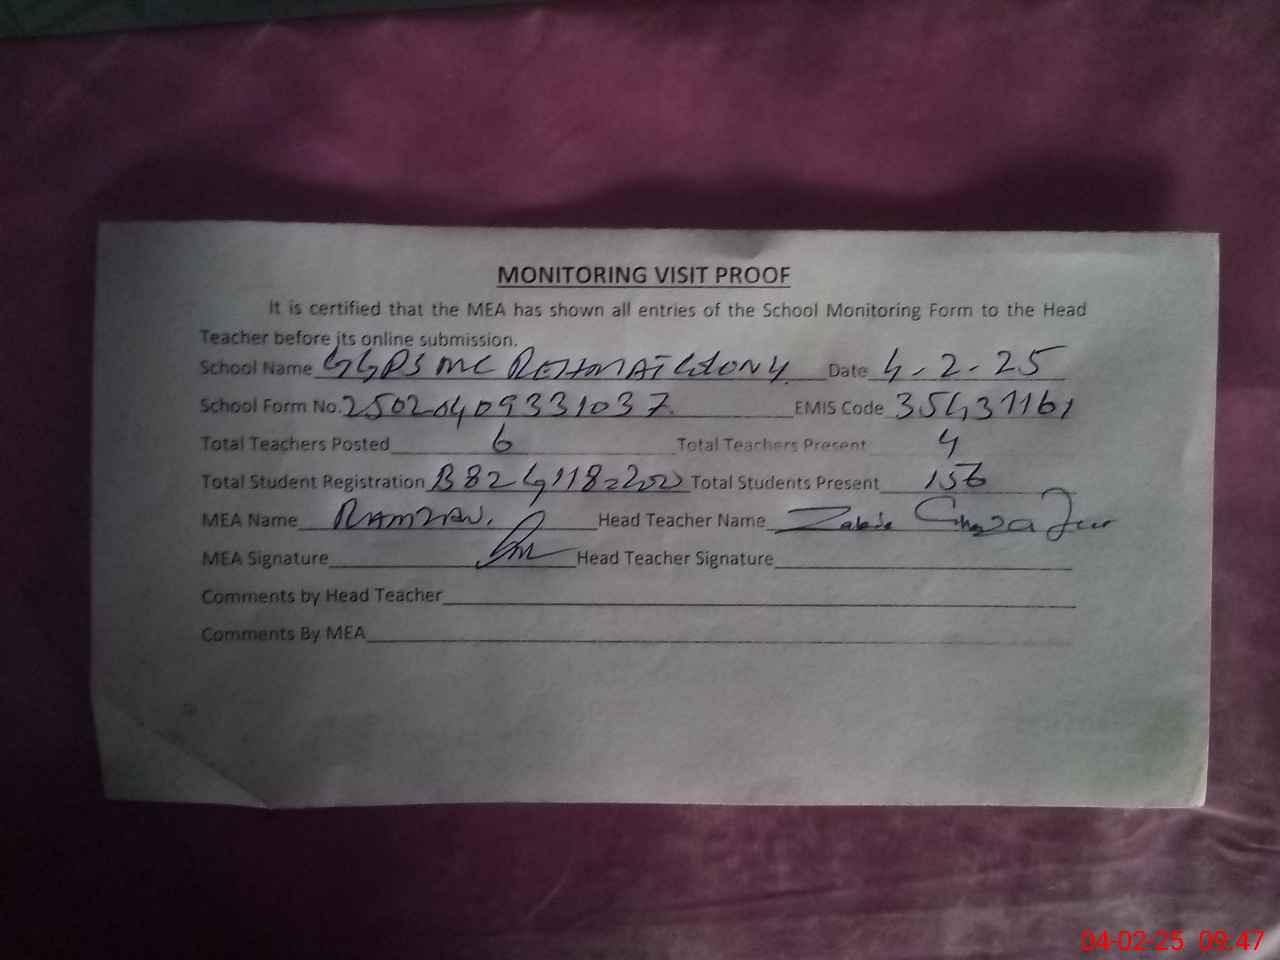 MONITORING VISIT PROOF
It is certified that the MEA has shown all entries of the School Monitoring Form to the Head
Teacher before its online submission.
School Name GGPS MC REHMAT COLONY Date 4-2-25
School Form No. 25020409331037 EMIS Code 35431161
Total Teachers Posted 6 Total Teachers Present 4
Total Student Registration Total Students Present 156
MEA Name RAMZAN. Head Teacher Name
MEA Signature Head Teacher Signature
Comments by Head Teacher
Comments By MEA
04-02-25 09:47